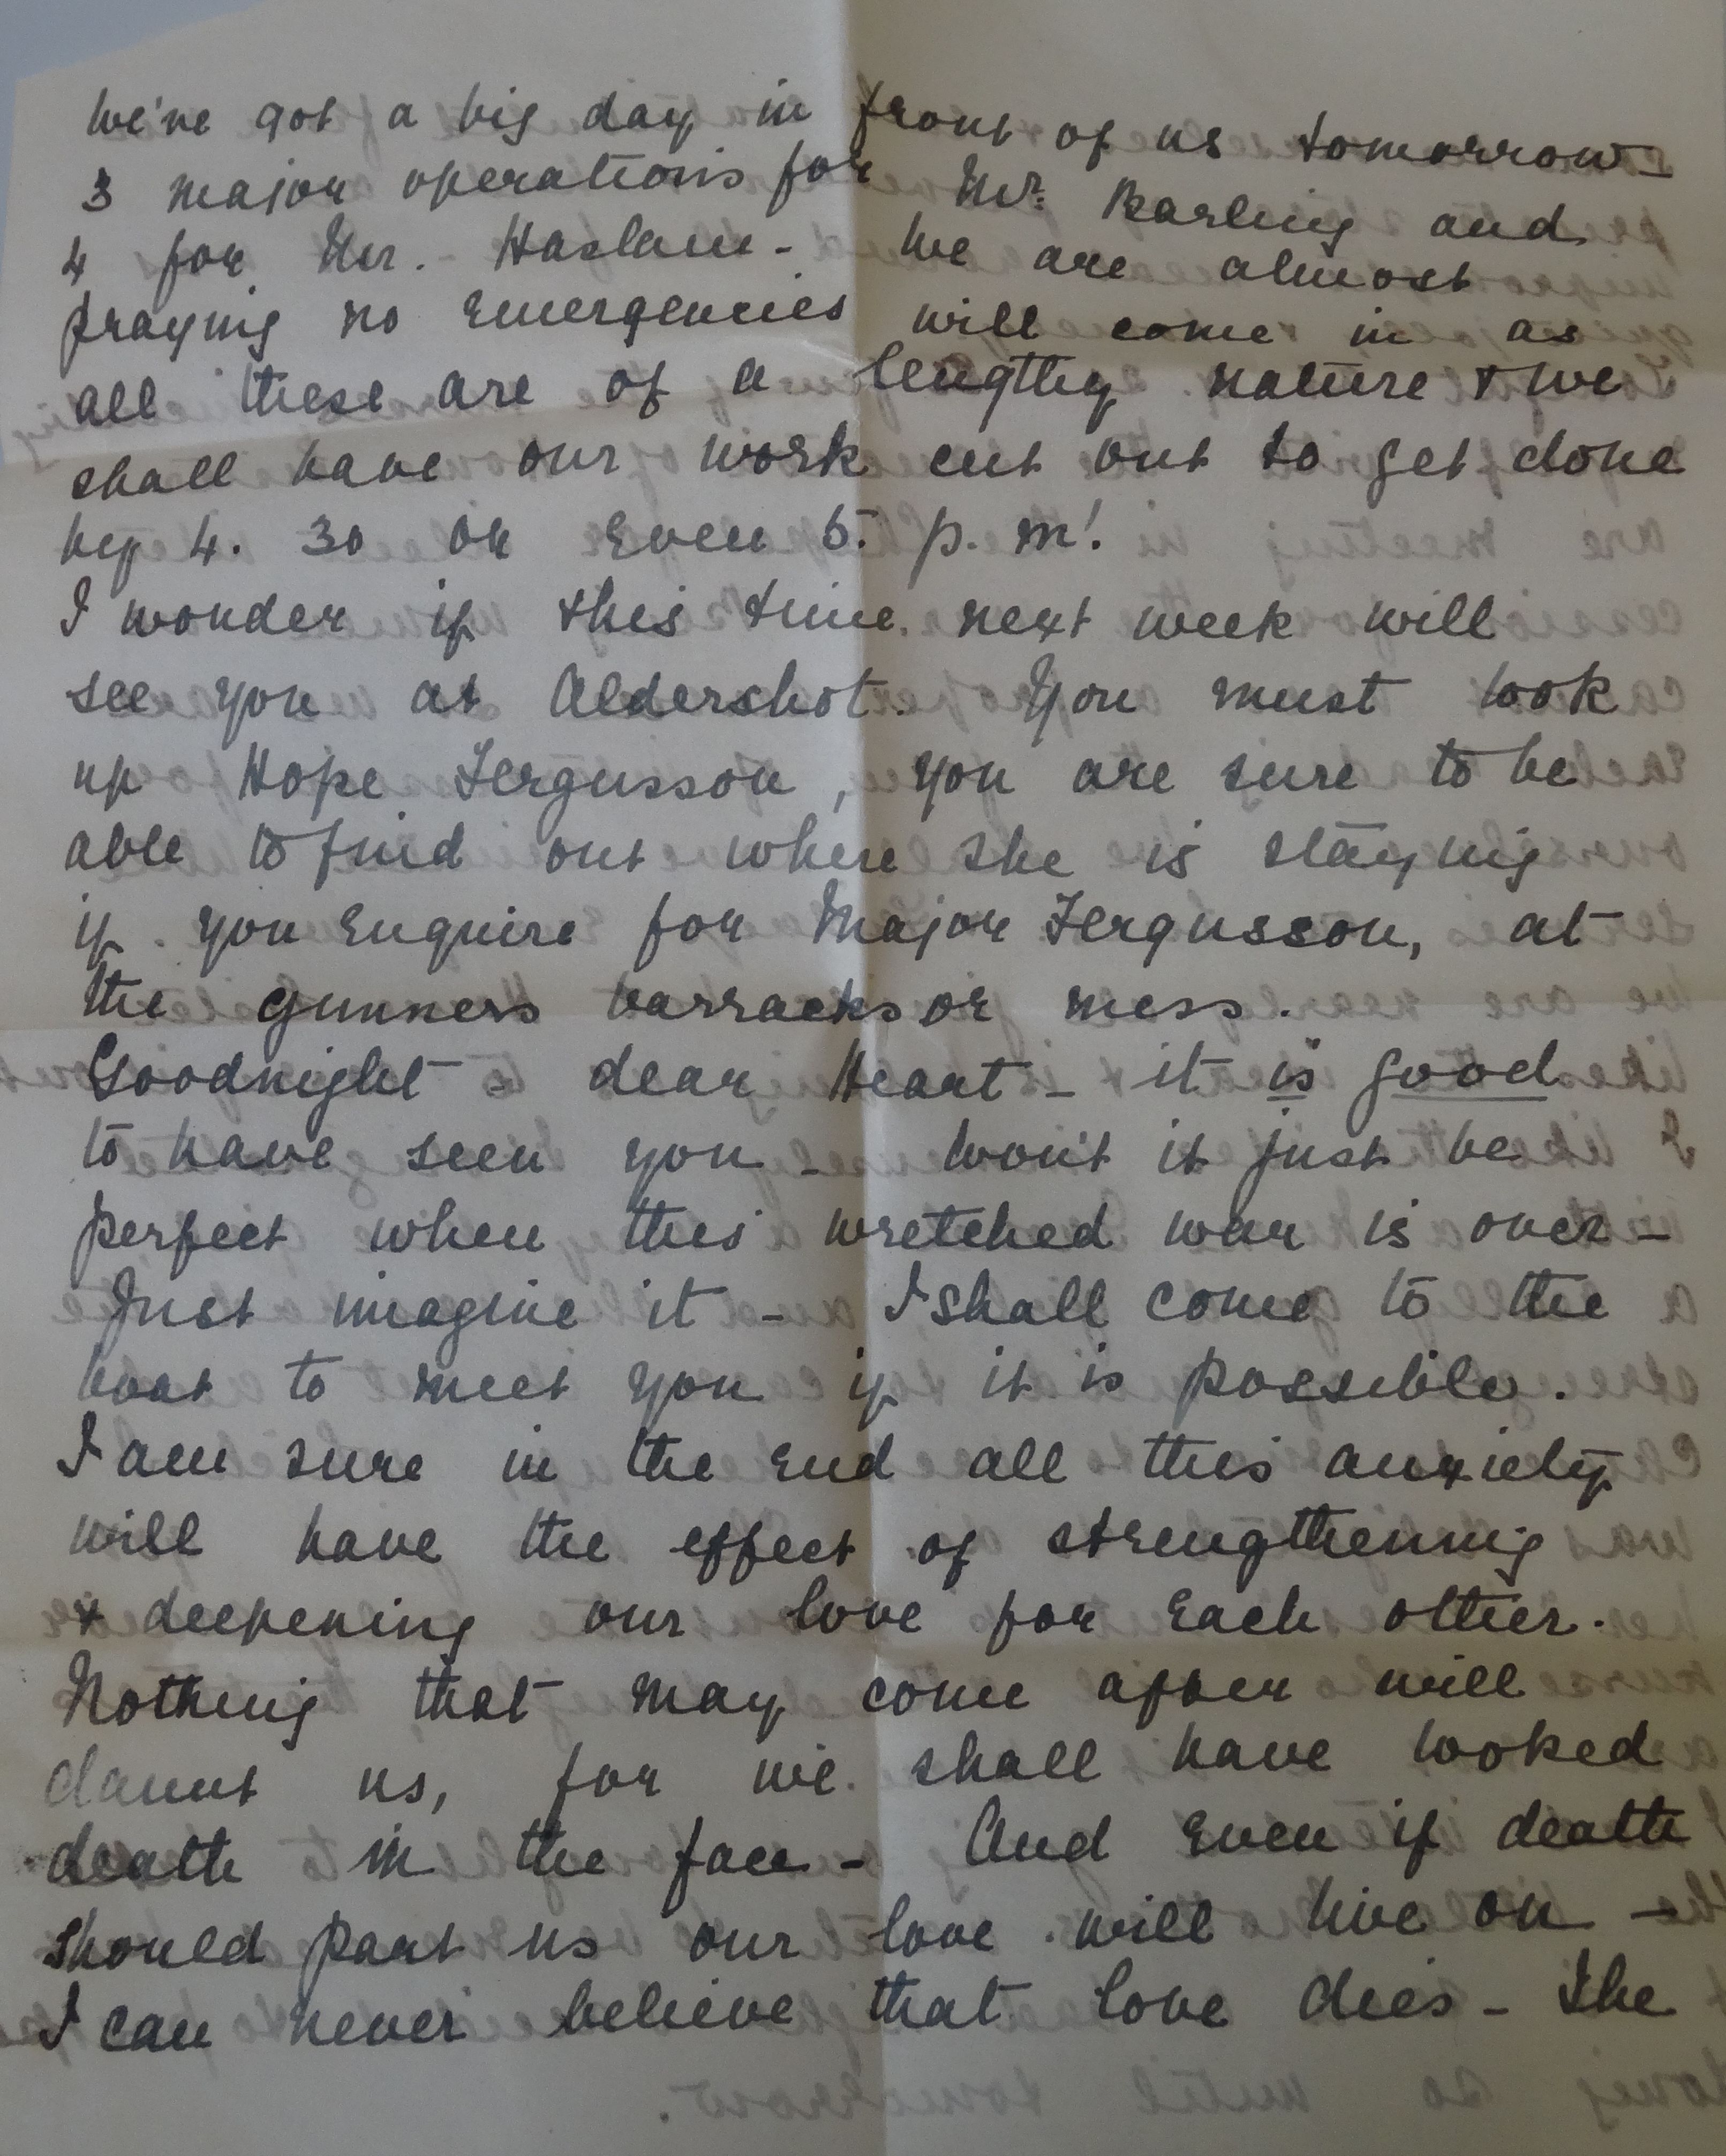 We've got a big day in front of us tomorrow -
3 major operations for Mr. Barling and
4 for Mr. Haslam - We are almost
praying no emergencies will come in as
all these are of a lengthy nature & we
shall have our work cut out to get done
by 4. 30 or even 5. p. m!
I wonder if this time next week will
see you at Aldershot. You must look
up Hope Fergusson, you are sure to be
able to find out where she is staying
if you enquire for Major Fergusson, at
the gunners barracks or mess.
Goodnight - dear Heart - it is good
to have seen you - won't it just be
perfect when this wretched war is over -
Just imagine it - I shall come to the
boat to meet you if it is possible.
I am sure in the end all this anxiety
will have the effect of strengthening
& deepening our love for each other.
Nothing that may come after will
daunt us, for we shall have looked
death in the face - And even if death
should part us our love will live on -
I can never believe that love dies - the